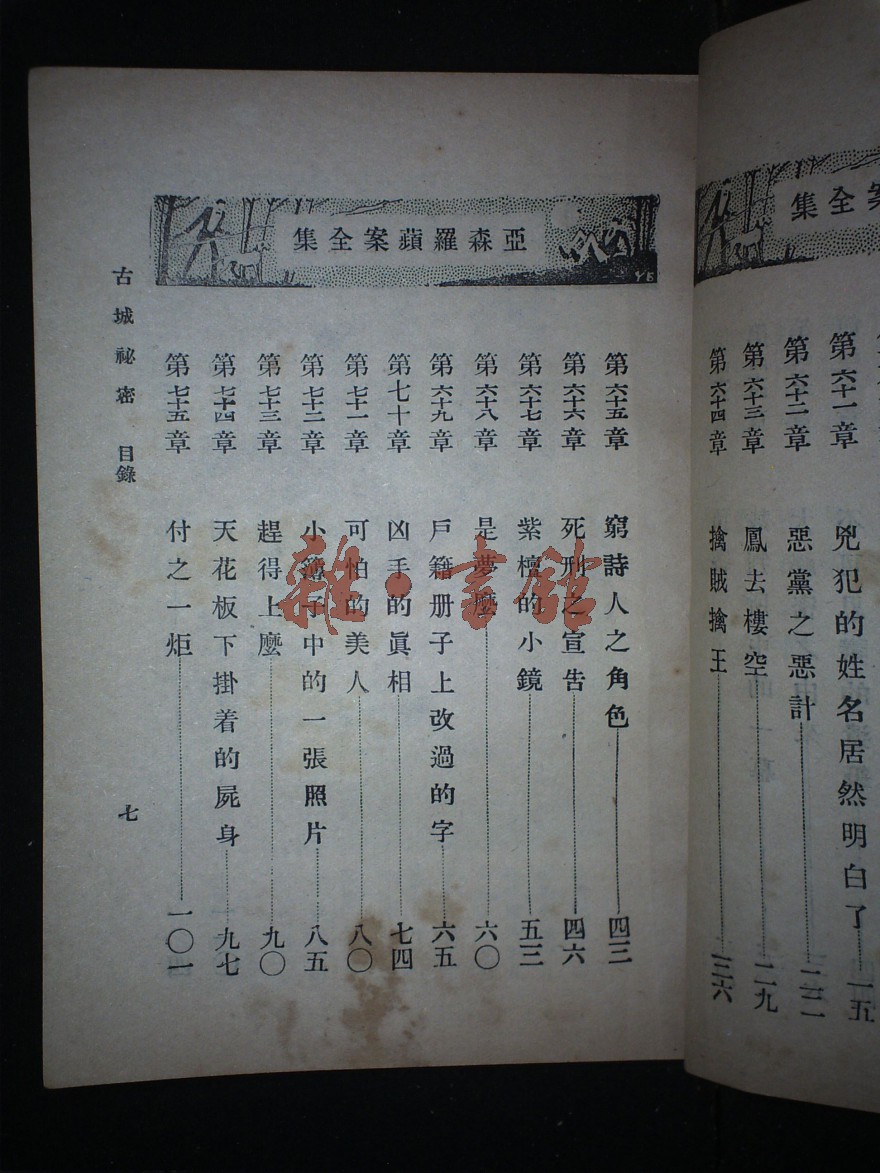 全集
第六十一章 兇犯的姓名居然明白了 一五
第六十二章 惡黨之惡計 二二
第六十三章 鳳去樓空 二九
第六十四章 擒賊擒王 三六
亞森羅蘋案全集
第六十五章 窮詩人之角色 四三
第六十六章 死刑之宣告 四六
第六十七章 紫檀的小鏡 五三
第六十八章 是夢麼 六〇
第六十九章 戶籍册子上改過的字 六五
第七十章 凶手的眞相 七四
第七十一章 可怕的美人 八〇
第七十二章 小簿子中的一張照片 八五
第七十三章 趕得上麼 九〇
第七十四章 天花板下掛着的屍身 九七
第七十五章 付之一炬 一〇一
古城祕密 目錄 七
雜·書館